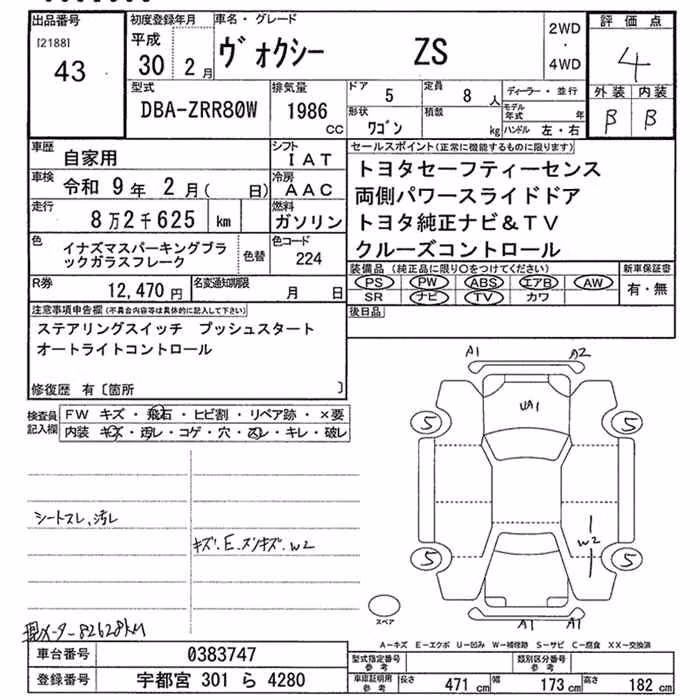 出品番号
[2188]
43
初度登録年月
平成
30 2月
車名・グレード
ヴォクシー ZS
2WD
・
4WD
評価点
4
外装 内装
B B
型式
DBA-ZRR80W
排気量
1986
CC
ドア
5
定員
8 人
形状
ワゴン
積載
kg
ディーラー・並行
モデル年式 年
ハンドル 左・右
車歴
自家用
シフト
IAT
車検
令和 9年 2月( 日)
冷房
AAC
走行
8万2千625 km
燃料
ガソリン
色
イナズマスパーキングブラ
ックガラスフレーク
色替
色コード
224
R券
12,470 円
名変通知期限
月 日
セールスポイント(正常に機能するものに限ります)
トヨタセーフティーセンス
両側パワースライドドア
トヨタ純正ナビ&TV
クルーズコントロール
装備品(純正品に限り○をつけてください)
PS PW ABS エアB AW
SR ナビ TV カワ
新車保証書
有・無
後日品
注意事項申告欄(不具合内容等は具体的に記入して下さい)
ステアリングスイッチ プッシュスタート
オートライトコントロール
修復歴 有〔箇所 〕
検査員
記入欄
FW キズ・飛石・ヒビ割・リペア跡・×要
内装 キズ・汚レ・コゲ・穴・スレ・キレ・破レ
シートスレ、汚レ
キズ.E.スリキズ.W2
メーター82628km
A1 A2
UA1
5 5
W2
5 5
A1 A1
スペア
A-キズ E-エクボ U-凹み W-補修跡 S-サビ C-腐食 XX-交換済
車台番号
0383747
登録番号
宇都宮 301 ら 4280
型式指定番号
参考
類別区分番号
参考
車庫証明用
参考
長さ 471 cm
幅 173 cm
高さ 182 cm